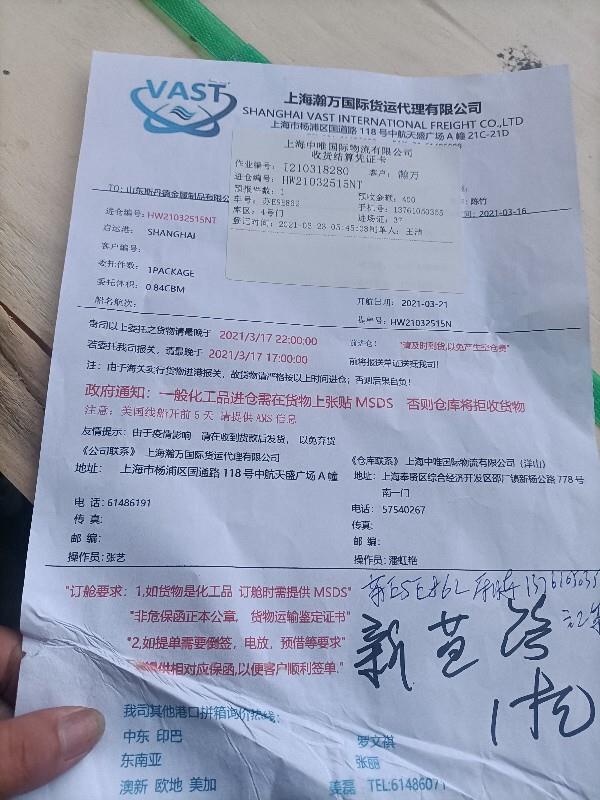 VAST
上海瀚万国际货运代理有限公司
SHANGHAI VAST INTERNATIONAL FREIGHT CO.,LTD
上海市杨浦区国道路 118 号中航天盛广场 A 幢 21C-21D
上海中唯国际物流有限公司
收货结算凭证卡
作业编号: I210318280 客户: 瀚万
进仓编号: HW21032515NT
预报件数: 1 预收金额: 400
手机号: 13761050355
库区: 4号门 进场证: 37
登记时间: 2021-03-23 05:45:38 制单人: 王洁
TO: 山东斯丹德金属制品有限公
陈竹
间: 2021-03-16
进仓编号: HW21032515NT
启运港: SHANGHAI
客户编号:
委托件数: 1PACKAGE
委托体积: 0.84CBM
船名航次:
开航日期: 2021-03-21
提单号: HW21032515N
贵司以上委托之货物请最晚于 2021/3/17 22:00:00 前进仓: "请及时到货,以免产生空仓费"
若委托我司报关,请最晚于 2021/3/17 17:00:00 前将报送单证送抵我司!
注: 由于海关实行货物进港报关,故货物请严格按以上时间进仓;否则后果自负!
政府通知: 一般化工品进仓需在货物上张贴 MSDS 否则仓库将拒收货物
注意: 美国线船开前 5 天 请提供 AMS 信息
友情提示: 由于疫情影响 请在收到货款后发货, 以免弃货
《公司联系》 上海瀚万国际货运代理有限公司
地址: 上海市杨浦区国通路 118 号中航天盛广场 A 幢
电 话: 61486191
传 真:
邮 编:
操作员: 张艺
《仓库联系》 上海中唯国际物流有限公司（洋山）
地址: 上海奉贤区综合经济开发区邵厂镇新杨公路 778 号
南一门
电话: 57540267
传真:
邮 编:
操作员: 潘虹艳
"订舱要求: 1,如货物是化工品 订舱时需提供 MSDS"
"非危保函正本公章, 货物运输鉴定证书"
"2,如提单需要倒签, 电放, 预借等要求"
提供相对应保函,以便客户顺利签单."
新
我司其他港口拼箱询价热线:
中东 印巴 罗文祺
东南亚 张丽
澳新 欧地 美加 姜磊 TEL:61486071